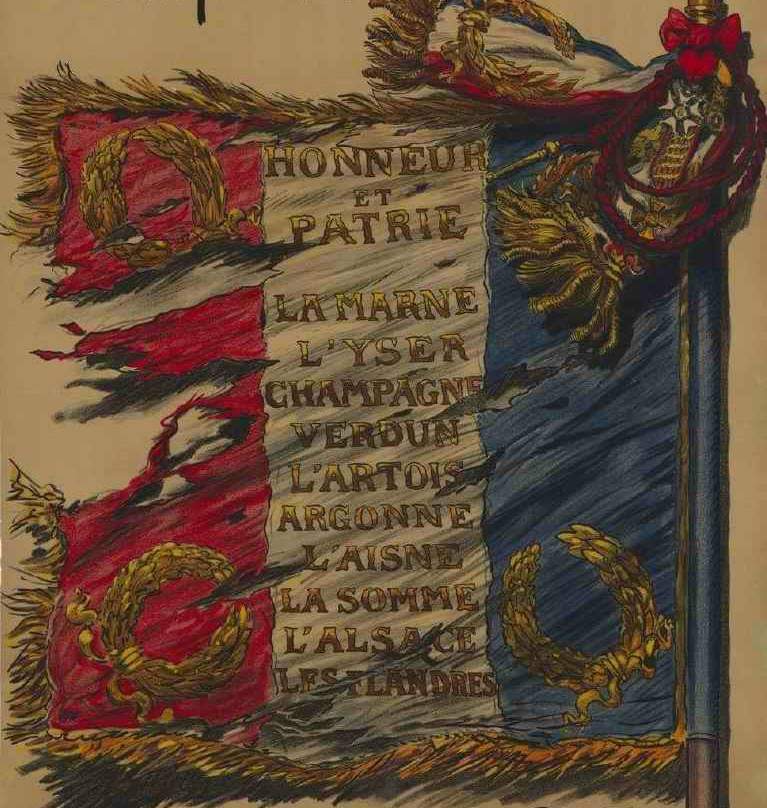 HONNEUR
ET
PATRIE
LA MARNE
L'YSER
CHAMPAGNE
VERDUN
L'ARTOIS
ARGONNE
L'AISNE
LA SOMME
L'ALSACE
LES FLANDRES